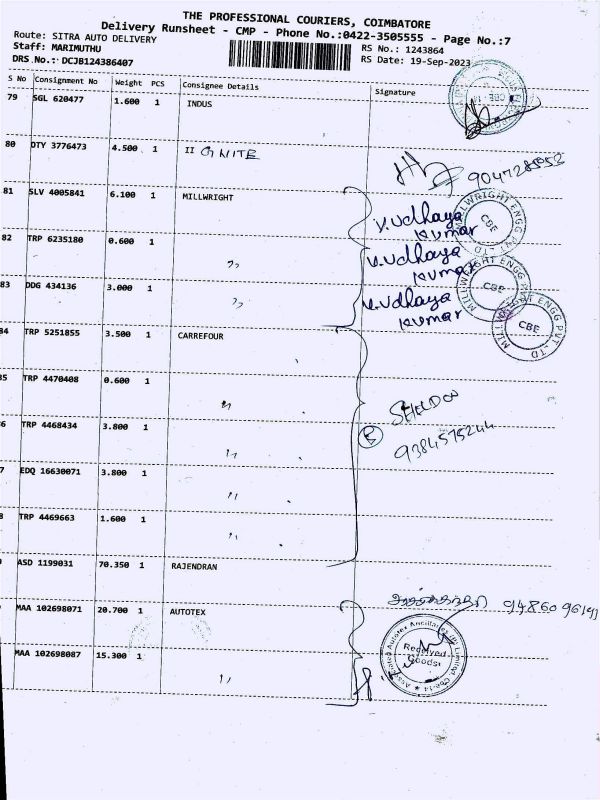 THE PROFESSIONAL COURIERS, COIMBATORE
Delivery Runsheet - CMP - Phone No.:0422-3505555 - Page No.:7
Route: SITRA AUTO DELIVERY
Staff: MARIMUTHU
DRS No.: DCJB124386407
RS No.: 1243864
RS Date: 19-Sep-2023
S No Consignment No Weight PCS Consignee Details Signature
79 SGL 620477 1.600 1 INDUS
80 DTY 3776473 4.500 1 II GNITE
81 SLV 4005841 6.100 1 MILLWRIGHT
V.Udhaya Kumar
MILLWRIGHT ENGG PVT LTD CBE
82 TRP 6235180 0.600 1 ,,
V.Udhaya Kumar
MILLWRIGHT ENGG PVT LTD CBE
83 DDG 434136 3.000 1 ,,
V.Udhaya Kumar
MILLWRIGHT ENGG PVT LTD CBE
84 TRP 5251855 3.500 1 CARREFOUR
85 TRP 4470408 0.600 1 ,,
SHELDON
9384575244
86 TRP 4468434 3.800 1 ,,
7 EDQ 16630071 3.800 1 ,,
8 TRP 4469663 1.600 1 ,,
ASD 1199031 70.350 1 RAJENDRAN
MAA 102698071 20.700 1 AUTOTEX
Associated Autotex Ancillaries (P) Limited, CBE-14
Received Goods
MAA 102698087 15.300 1 ,,